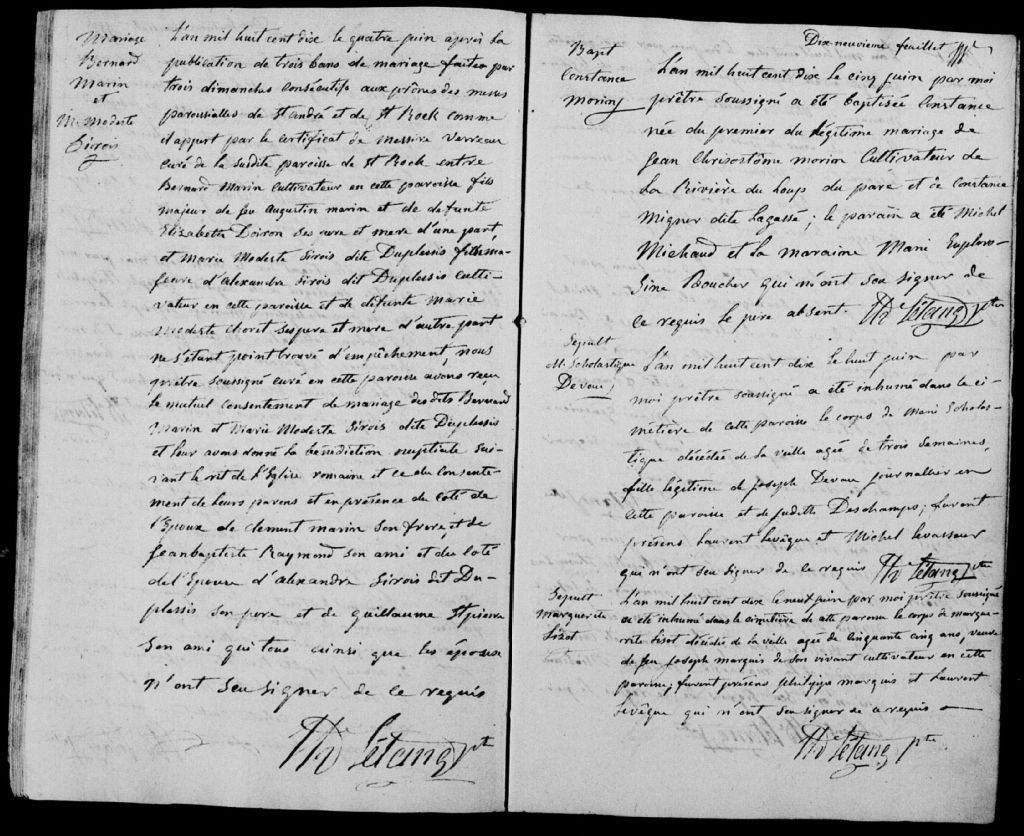 Mariage
Bernard
Marin
et
M. Modeste
Sirois
L'an mil huit cent dix le quatre juin après la
publication de trois bans de mariage faites par
trois dimanches consécutifs aux prônes des messes
paroissialles de St André et de St Rock comme
il appert par le certificat de messire Verreau
curé de la susdite paroisse de St Rock entre
Bernard Marin cultivateur en cette paroisse fils
majeur de feu Augustin marin et de defunte
Elizabette Doiron ses pere et mere d'une part
et Marie Modeste Sirois dite Duplessis fille ma-
jeure d'alexandre Sirois dit Duplessis culti-
vateur en cette paroisse et de défunte Marie
Modeste Choret ses pere et mere d'autre part
ne s'étant point trouvé d'empêchement nous
prêtre soussigné curé en cette paroisse avons reçu
le mutuel consentement de mariage des dits Bernard
Marin et Marie Modeste Sirois dite Duplessis
et leur avons donné la bénédiction nuptiale sui-
vant le rit de l'Eglise romaine et ce du consente-
ment de leurs parens et en présence du coté de
l'Epoux de clement marin son frere, et de
Jean baptiste Raymond son ami et du coté
de l'Epouse d'alexandre Sirois dit Du-
plessis son pere et de guillaume St pierre
son ami qui tous ainsi que les épouse
n'ont seu signer de ce requis
Letang ptr
Dix neuvieme feuillet
Bapt
Constance
morin
L'an mil huit cent dix le cinq juin par moi
prêtre soussigné a été baptisée Constance
née du premier du légitime mariage de
Jean Chrisostôme morin Cultivateur de
La Rivière du Loups du parc et de Constance
Migner dite Lagassé; le parain a été Michel
Michaud et la maraine Marie Euphro-
sine Boucher qui n'ont seu signer de
ce requis le père absent. Letang ptr
Sepult
M. Scholastique
Devau
L'an mil huit cent dix le huit juin par
moi prêtre soussigné a été inhumé dans le ci-
métière de cette paroisse le corps de Marie Scholas-
tique décédée de la veille agée de trois semaines,
fille légitime de Joseph Devau journallier en
cette paroisse et de judith Deschamps; furent
présens Laurent Levêque et Michel Levasseur
qui n'ont seu signer de ce requis Letang ptr
Sepult
marguerite
Lizot
L'an mil huit cent dix le neuf juin par moi prêtre soussigné
a été inhumé dans le cimetière de cette paroisse le corps de margue-
rite Lizot décédée de la veille agée de cinquante cinq ans, veuve
de feu Joseph marquis de son vivant cultivateur en cette
paroisse; furent présens philippe marquis et Laurent
Levêque qui n'ont seu signer de ce requis
Letang ptr